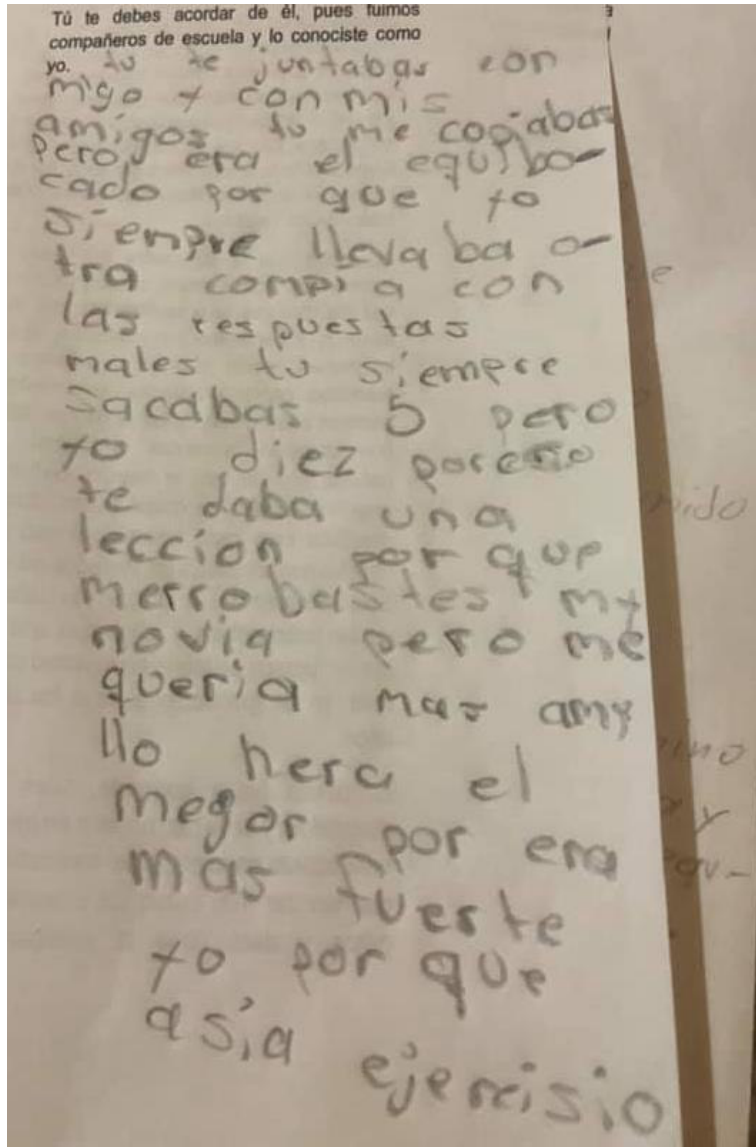 Tú te debes acordar de él, pues fuimos
compañeros de escuela y lo conociste como
yo. tu te juntabas con
migo y con mis
amigos tu me copiabas
Pero era el equibo-
cado por que yo
siempre llevaba o-
tra compia con
las respuestas
males tu siempre
sacabas 5 pero
yo diez por eso
te daba una
leccion por que
merrobastes my
novia pero me
queria mas amy
llo hera el
megor por era
mas fuerte
yo por que
asia ejercisio